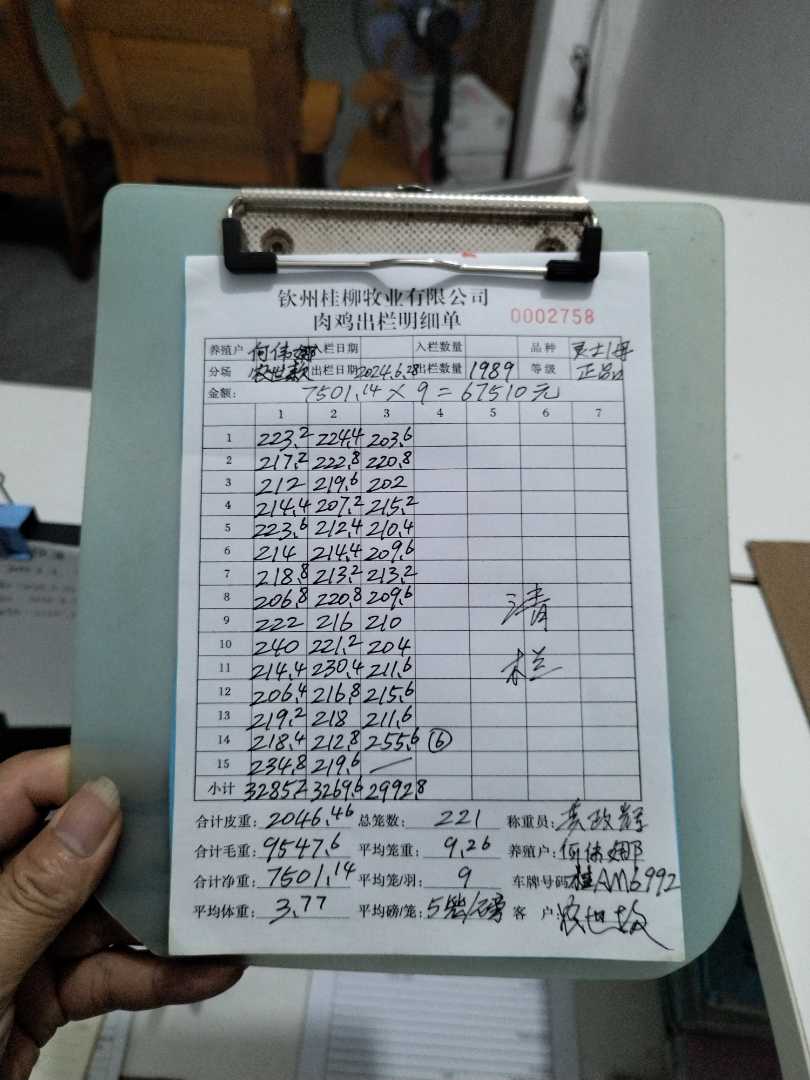 钦州桂柳牧业有限公司
肉鸡出栏明细单 0002758
养殖户 何伟娜 入栏日期 入栏数量 品种
分场 出栏日期 2024.6.28 出栏数量 1989 等级 正品
金额: 7501.14 × 9 = 67510元
1 2 3 4 5 6 7
1 223.2 224.4 203.6
2 217.2 222.8 220.8
3 212 219.6 202
4 214.4 207.2 215.2
5 223.6 212.4 210.4
6 214 214.4 209.6
7 218.8 213.2 213.2
8 206.8 220.8 209.6
9 222 216 210 清
10 240 221.2 204
11 214.4 230.4 211.6 栏
12 206.4 216.8 215.6
13 219.2 218 211.6
14 218.4 212.8 255.6 ⑥
15 234.8 219.6 —
小计 3285.2 3269.6 2992.8
合计皮重: 2046.46 总笼数: 221 称重员:
合计毛重: 9547.6 平均笼重: 9.26 养殖户: 何伟娜
合计净重: 7501.14 平均笼/羽: 9 车牌号码: 桂AM6992
平均体重: 3.77 平均磅/笼: 5笼/磅 客户: